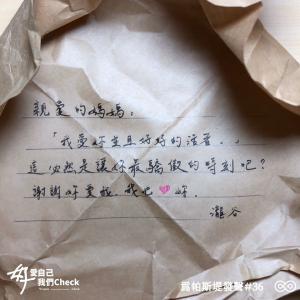 親愛的媽媽：
「我愛妳並且好好的活著。」
這必然是讓妳最驕傲的時刻吧？
謝謝妳愛我，我也妳．
瀧谷
愛自己
我們Check
為帕斯堤發聲#36